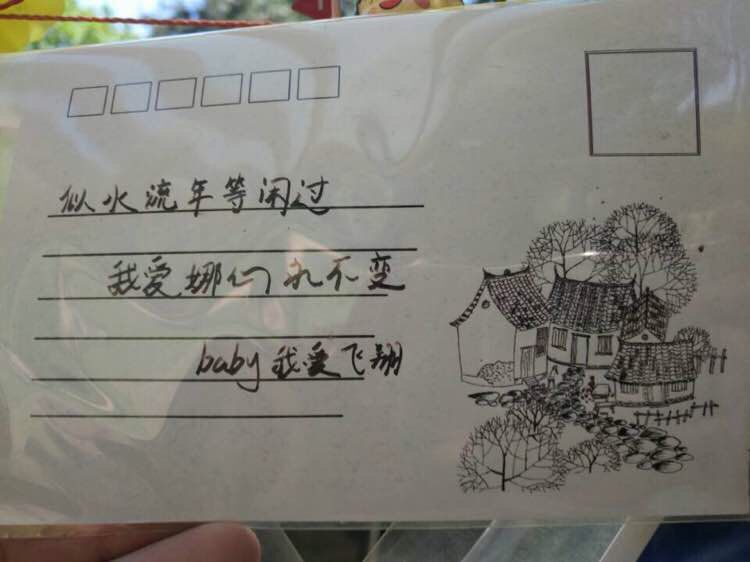 似水流年等闲过
我爱娜们永不变
baby我爱飞翔